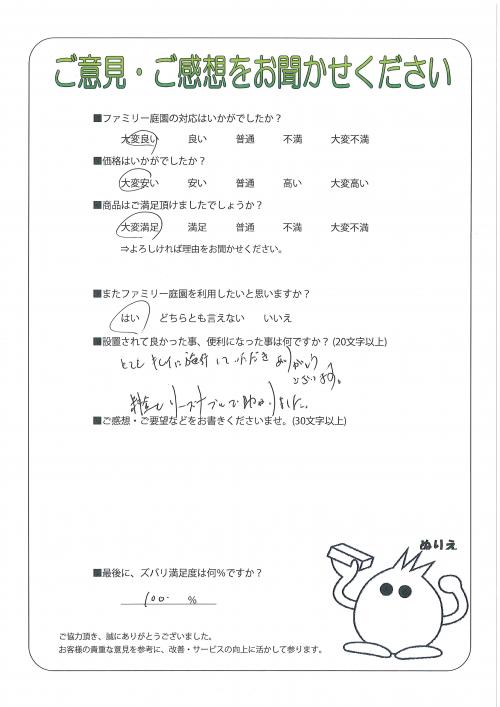 ご意見・ご感想をお聞かせください
■ファミリー庭園の対応はいかがでしたか？
大変良い 良い 普通 不満 大変不満
■価格はいかがでしたか？
大変安い 安い 普通 高い 大変高い
■商品はご満足頂けましたでしょうか？
大変満足 満足 普通 不満 大変不満
⇒よろしければ理由をお聞かせください。
■またファミリー庭園を利用したいと思いますか？
はい どちらとも言えない いいえ
■設置されて良かった事、便利になった事は何ですか？(20文字以上)
とても キレイに施行していただき ありがとう
ございます。
料金もリーズナブルで助かりました。
■ご感想・ご要望などをお書きくださいませ。(30文字以上)
ぬりえ
■最後に、ズバリ満足度は何%ですか？
100 %
ご協力頂き、誠にありがとうございました。
お客様の貴重な意見を参考に、改善・サービスの向上に活かして参ります。